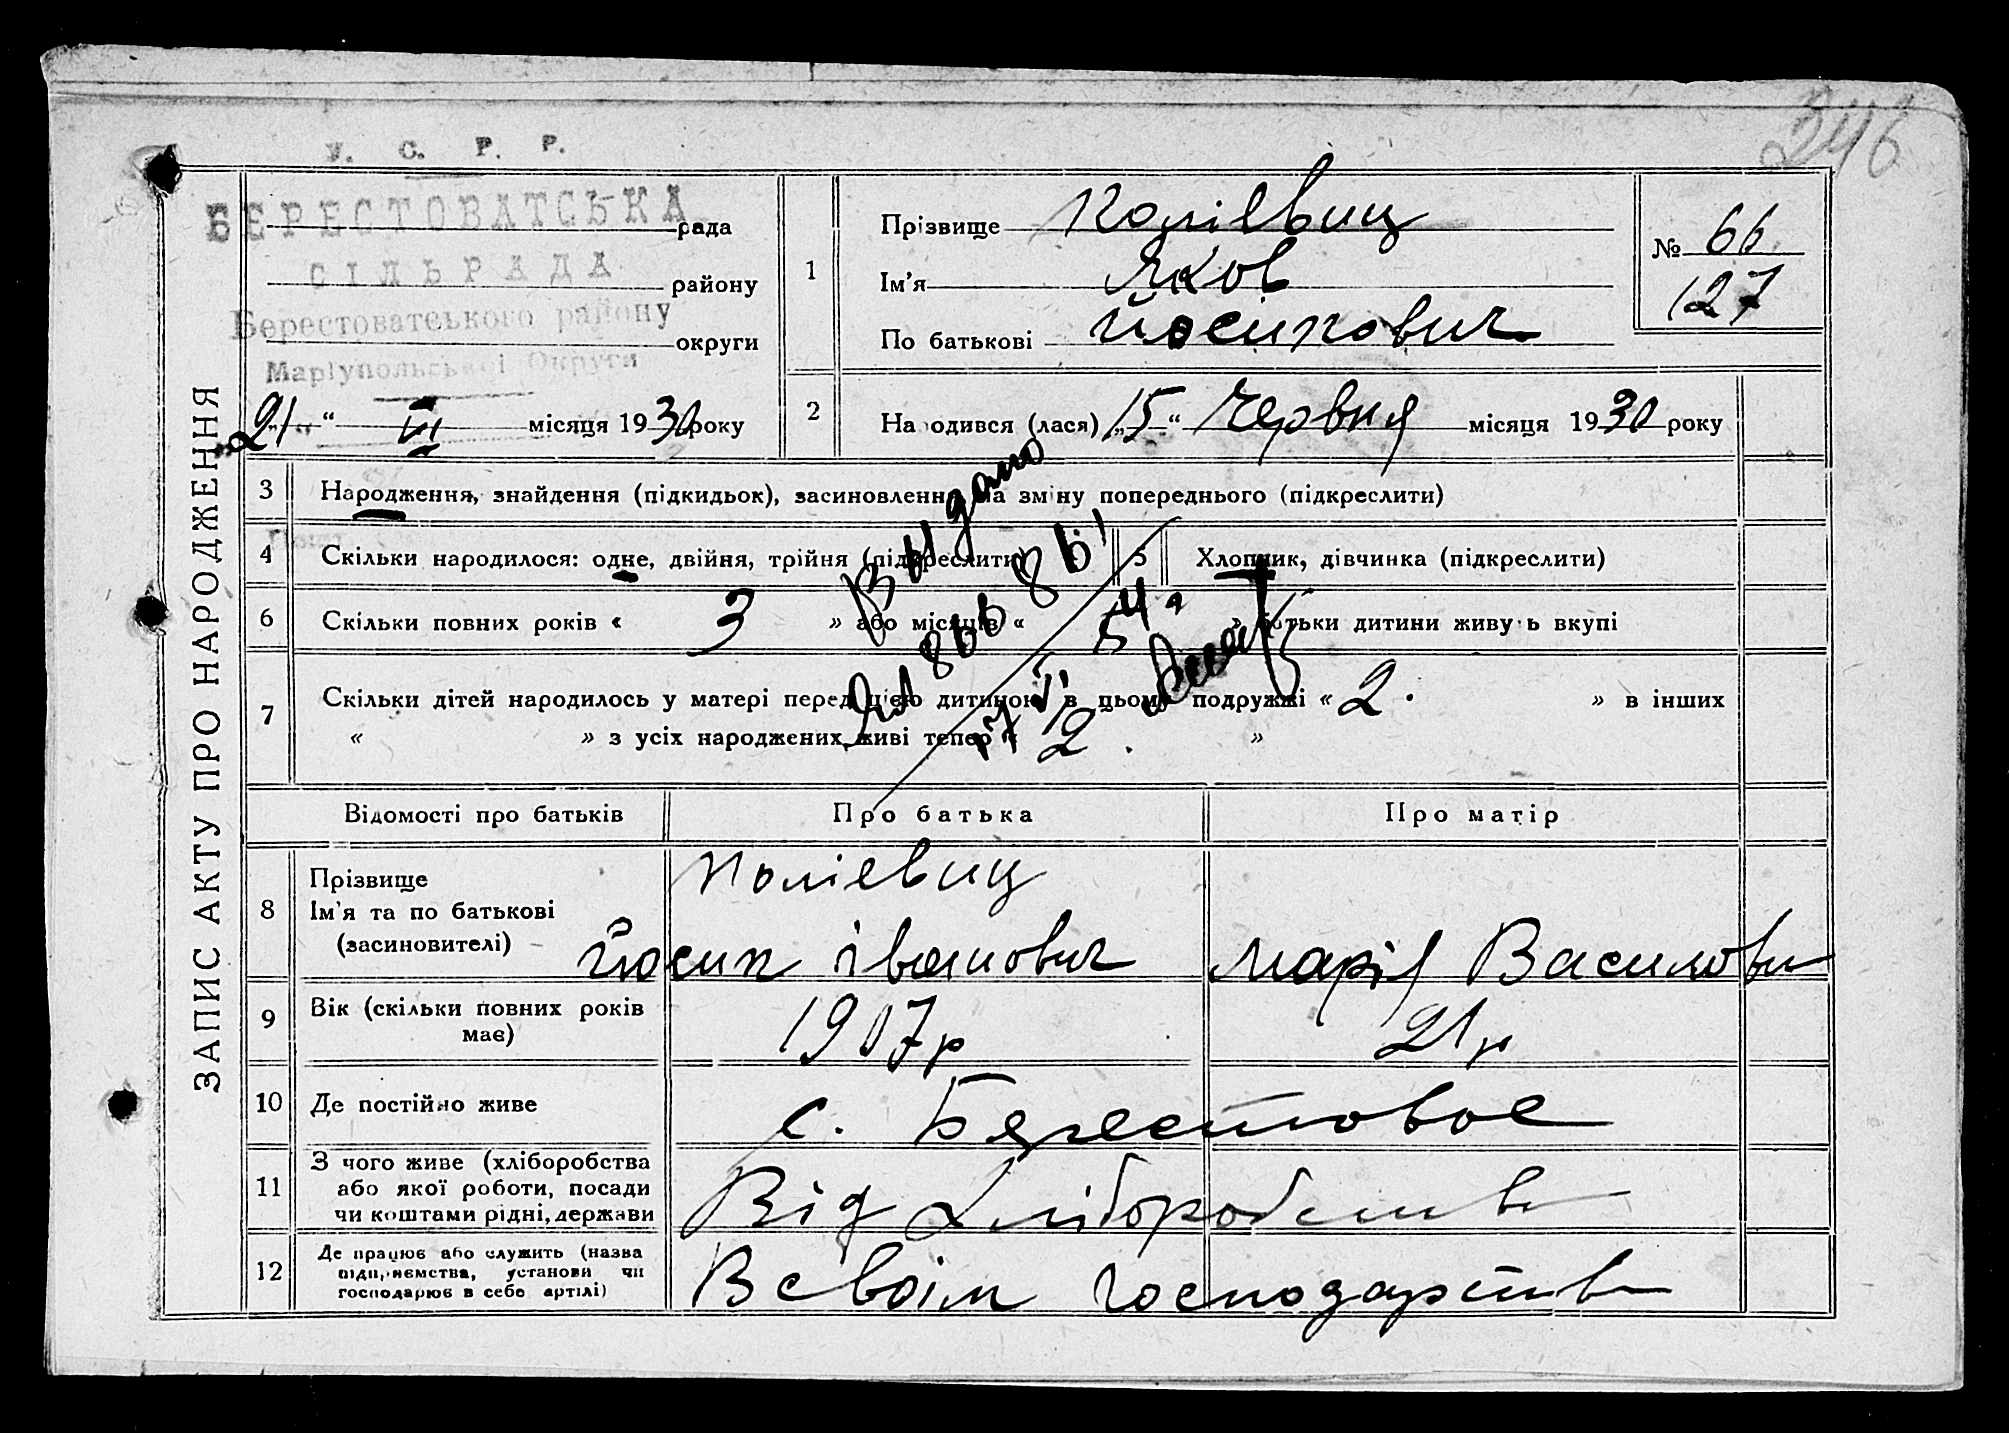 246
У. С. Р. Р.
БЕРЕСТОВАТСЬКА
рада
СІЛЬРАДА
району
Берестоватського району
округи
Маріупольської Округи
21 “ VI місяця 1930 року
ЗАПИС АКТУ ПРО НАРОДЖЕННЯ
1
Прізвище
Ім'я Яков
По батькові Йосипович
№ 66
127
2 Народився (лася) „15“ Червня місяця 1930 року
3 Народження, знайдення (підкидьок), засиновлення на зміну попереднього (підкреслити)
4 Скільки народилося: одне, двійня, трійня (підкреслити)
5 Хлопчик, дівчинка (підкреслити)
6 Скільки повних років « 3 » або місяців « » батьки дитини живуть вкупі
Выдано
7 Скільки дітей народилось у матері перед цією дитиною в цьому подружжі « 2. » в інших
« » з усіх народжених живі тепер « 2. »
Відомості про батьків Про батька Про матір
8 Прізвище
Ім'я та по батькові
(засиновителі)
Йосип Іванович Марія Василовн
9 Вік (скільки повних років
має)
1907 р 21 р
10 Де постійно живе с. Берестовое
11 З чого живе (хліборобства
або якої роботи, посади
чи коштами рідні, держави
Від Хліборобств
12 Де працює або служить (назва
підприємства, установи чи
господарює в себе артілі)
В своїм господарств